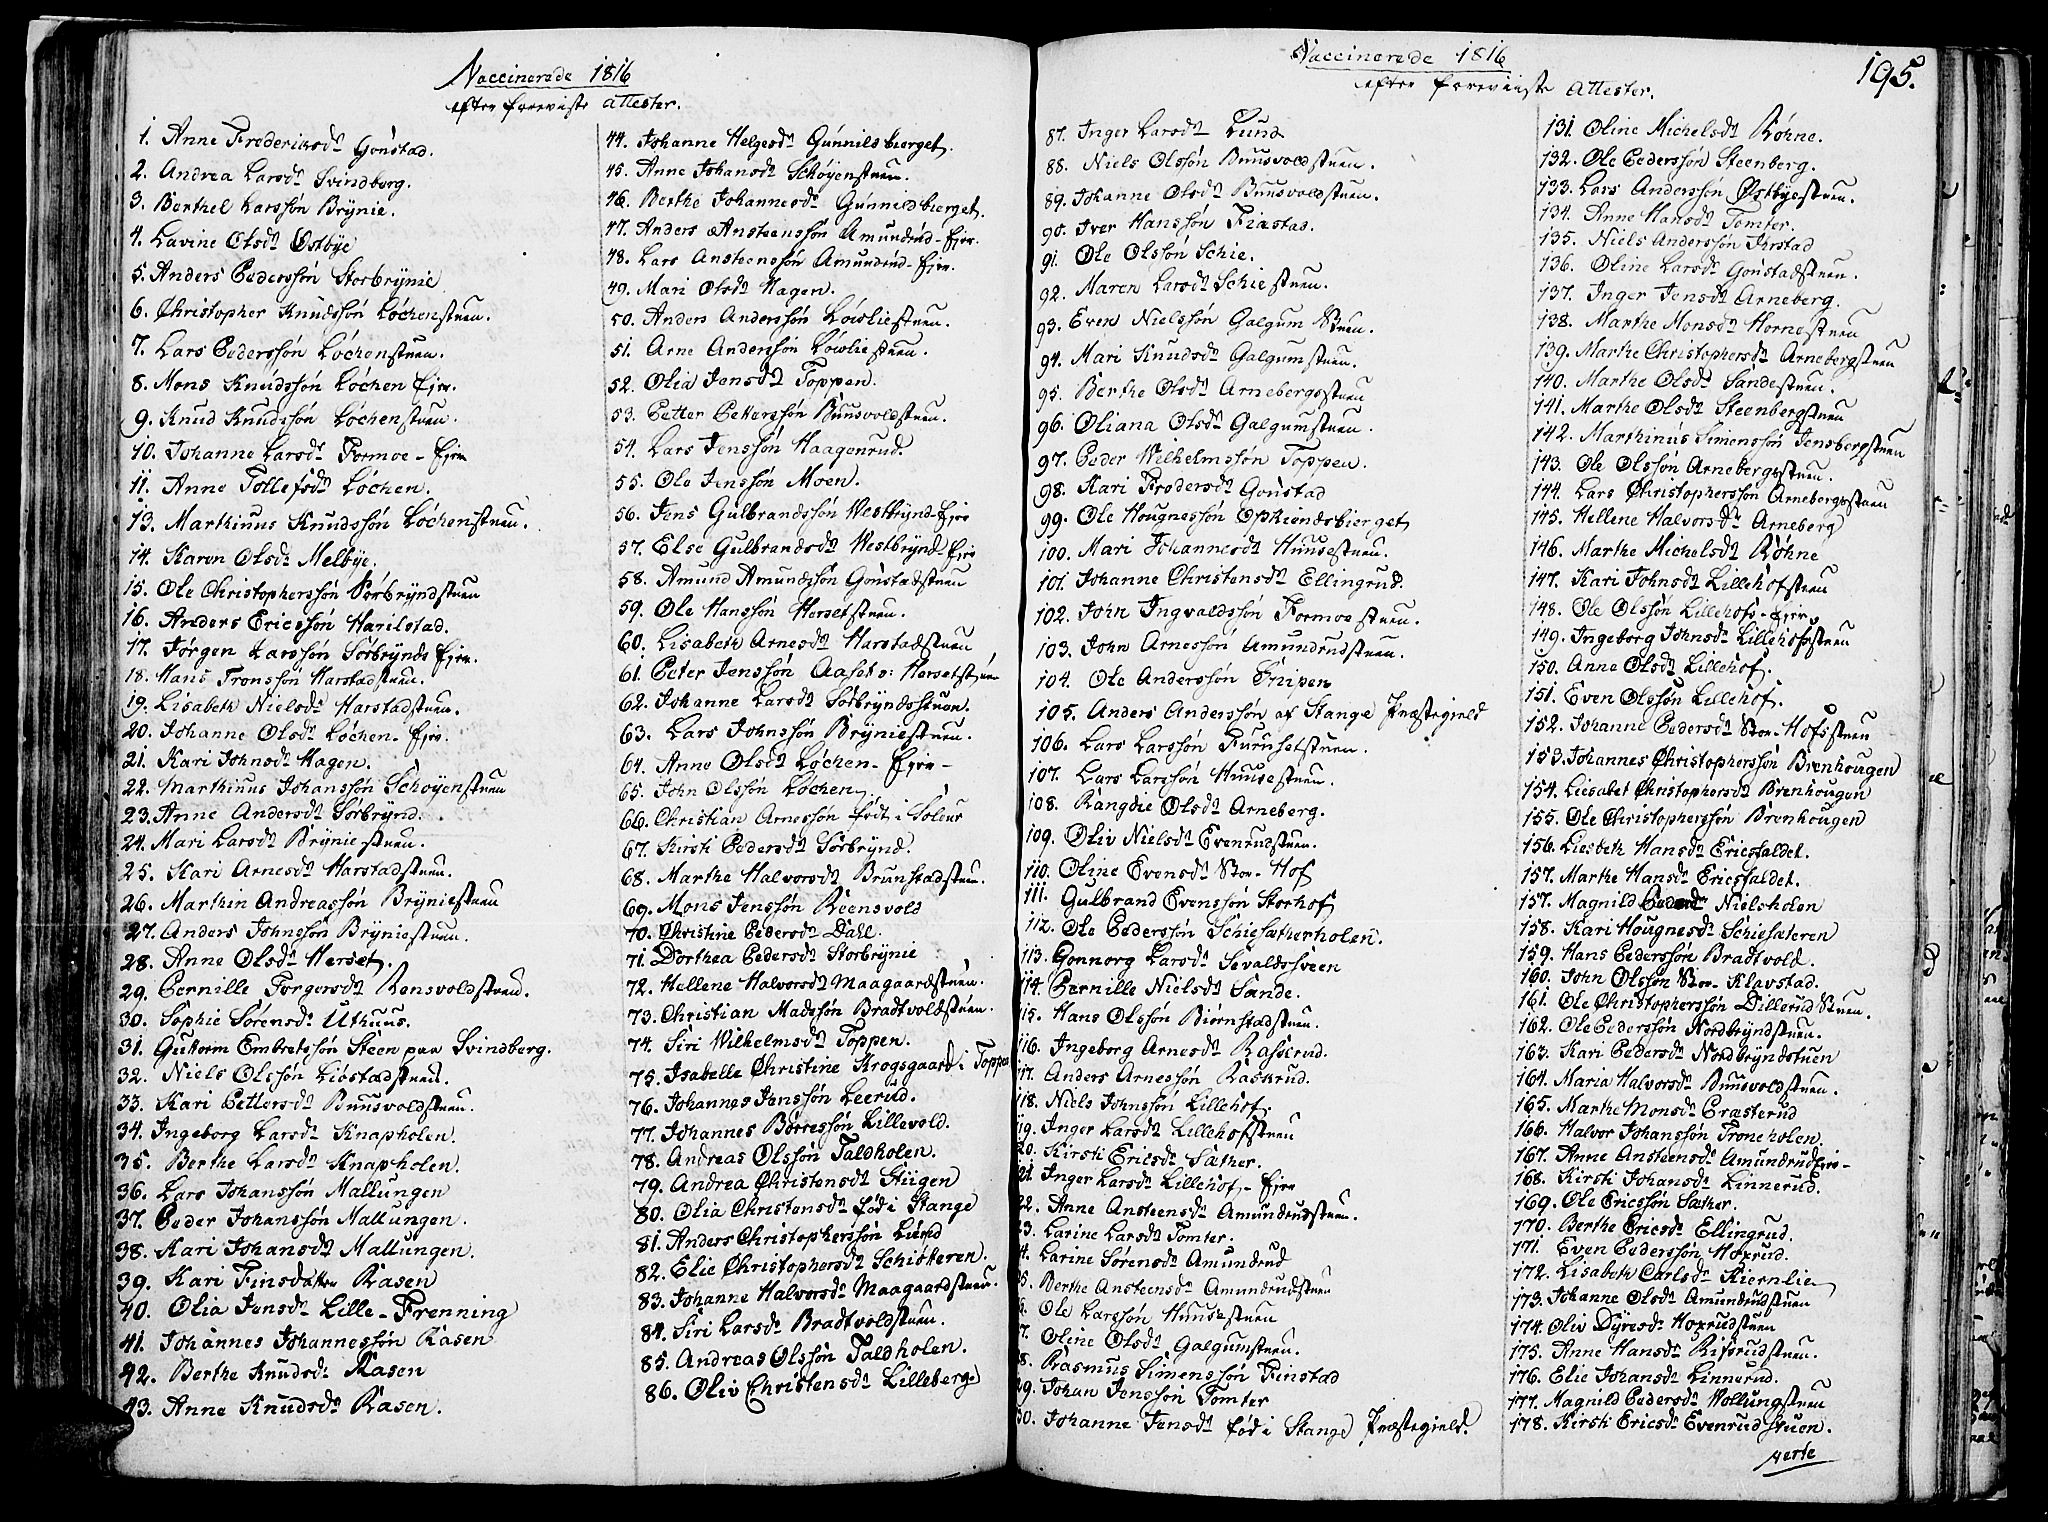 Vaccinerede 1816
efter foreviiste attester.
1. Anne Frederiksd. Gonstad.
2. Andrea Larsd. Svindberg.
3. Berthel Larssøn Brÿnie.
4. Lavine Olsd. Østbÿe
5. Anders Pederssøn Storbrÿnie
6. Christopher Knudssøn Løchenstuen.
7. Lars Pederssøn Løchenstuen.
8. Mons Knudssøn Løchen Ejer.
9. Knud Knudssøn Løchenstuen.
10. Johanne Larsd. Formoe - Ejer
11. Anne Tollefsd. Løchen.
13. Marthinus Knudssøn Løchenstuen.
14. Karen Olsd. Melbÿe.
15. Ole Christopherssøn Sørbrÿndstuen
16. Anders Ericssøn Harilstad.
17. Jørgen Larssøn Sørbrÿnds Ejer.
18. Hans Tronssøn Harstadstuen.
19. Lisabeth Nielsd. Harstadstuen.
20. Johanne Olsd. Løchen. Ejer.
21. Kari Johnsd. Hagen.
22. Marthinus Johanssøn Schøyenstuen
23. Anne Andersd. Sørbrÿnd.
24. Mari Larsd. Brÿniestuen.
25. Kari Arnesd. Harstadstuen.
26. Marthin Andreassøn Brÿniestuen
27. Anders Johnssøn Brÿniestuen.
28. Anne Olsd. Herset.
29. Pernille Torgersd. Rensvoldstuen.
30. Sophie Sørensd. Uthuus.
31. Guttorm Embretssøn Steen paa Svindberg.
32. Niels Olssøn Liøstadstuen.
33. Kari Pettersd. Buusvoldstuen.
34. Ingeborg Larsd. Knapholen.
35. Berthe Larsd. Knapholen.
36. Lars Johanssøn Mallungen
37. Peder Johanssøn Mallungen.
38. Kari Johansd. Mallungen.
39. Kari Finsdatter Rasen
40. Olia Jensd. Lille-Frenning
41. Johannes Johannessøn Rasen
42. Berthe Knudsd. Rasen
43. Anne Knudsd. Rasen.
44. Johanne Helgesd. Gunnildsbierget.
45. Anne Johansd. Schøyenstuen.
46. Berthe Johannesd. Gunnildbierget.
47. Anders Ansteenssøn Amundrud-Ejer.
48. Lars Ansteenssøn Amundrud-Ejer.
49. Mari Olsd. Hagen.
50. Anders Anderssøn Løvliestuen.
51. Arne Anderssøn Løvliestuen.
52. Olia Jensd. Toppen.
53. Petter Petterssøn Buusvoldstuen.
54. Lars Jenssøn Haagenrud.
55. Ole Jenssøn Moen.
56. Jens Gulbrandssøn Westbrÿnd-Ejer
57. Else Gulbrandsd. Westbrÿnd-Ejer
58. Amund Amundssøn Gonstadstuen
59. Ole Hanssøn Hersetstuen.
60. Lisabeth Arnesd. Harstadstuen
61. Peter Jenssøn Aaset v: Hersetstuen
62. Johanne Larsd. Sørbrÿndstuen.
63. Lars Johnssøn Brÿniestuen.
64. Anne Olsd. Løchen - Ejer -
65. John Olssøn Løchen.
66. Christian Arnessøn født i Soleur
67. Kirsti Pedersd. Sørbrÿnd.
68. Marthe Halvorsd. Brunstadstuen.
69. Mons Jenssøn Reensvold
70. Christine Pedersd. Dahl.
71. Dorthea Pedersd. Storbrÿnie
72. Hellene Halvorsd. Maagaardstuen.
73. Christian Madssøn Bradtvoldstuen.
74. Siri Wilhelmsd. Toppen.
75. Isabelle Christine Krogsgaard i Toppen
76. Johannes Jenssøn Leerud.
77. Johannes Børressøn Lillevold.
78. Andreas Olssøn Taldholen.
79. Andrea Christensd. Stiigen
80. Olia Christensd. fød i Stange
81. Anders Christopherssøn Lierud
82. Elie Christophersd. Schiøtteren.
83. Johanne Halvorsd. Maagaardstuen.
84. Siri Larsd. Bradtvoldstuen.
85. Andreas Olssøn Taldholen.
86. Oliv Christensd. Lilleberge
Vaccinerede 1816
efter foreviiste attester.
195.
87. Inger Larsd. Lund
88. Niels Olssøn Buusvoldstuen.
89. Johanne Olsd. Buusvoldstuen.
90. Iver Hanssøn Fiæstad.
91. Ole Olssøn Schie.
92. Maren Larsd. Schiestuen.
93. Even Nielssøn Galgum Stuen.
94. Mari Knudsd. Galgumstuen.
95. Berthe Olsd. Arnebergsstuen
96. Oliana Olsd. Galgumstuen.
97. Peder Wilhelmssøn Toppen.
98. Kari Fredersd. Gonstad
99. Ole Hougnessøn Opkiøndsbierget
100. Mari Johannesd. Huusestuen.
101. Johanne Christensd. Ellingrud.
102. John Ingvaldssøn Formoestuen.
103. John Arnessøn Amundrudstuen.
104. Ole Anderssøn Griipen
105. Anders Anderssøn af Stange Præstegield
106. Lars Larssøn Furusetstuen.
107. Lars Larssøn Huusestuen.
108. Rangdie Olsd. Arneberg.
109. Oliv Nielsd. Evenrudstuen.
110. Oline Evensd. Stor-Hof
111. Gulbrand Evenssøn Storhof
112. Ole Pederssøn Schiesætherholen.
113. Gonnorg Larsd. Sevaldshveen
114. Pernille Nielsd. Sande.
115. Hans Olssøn Biørnstadstuen.
116. Ingeborg Arnesd. Raskrud.
17. Anders Arnessøn Raskrud.
118. Niels Johnssøn Lillehof.
19. Inger Larsd. Lillehofstuen
20. Kirsti Ericsd. Sæther.
21. Inger Larsd. Lillehof - Ejer
22. Anne Ansteensd. Amundrudstuen.
23. Larine Larsd. Tomter.
4. Larine Sørensd. Amundrud
5. Berthe Ansteensd. Amundrudstuen
6. Ole Larssøn Huusestuen
7. Oline Olsd. Galgumstuen.
8. Rasmus Simenssøn Finstad
29. Johan Jenssøn Tomter
30. Johanne Jensd. fød i Stange Præstegield.
131. Oline Michelsd. Røhne.
132. Ole Pederssøn Steenberg.
133. Lars Anderssøn Østbÿestuen.
134. Anne Hansd. Tomter.
135. Niels Anderssøn Ihrstad
136. Oline Larsd. Gonstadstuen.
137. Inger Jensd. Arneberg.
138. Marthe Monsd. Hornestuen
139. Marthe Christophersd. Arnebergstuen
140. Marthe Olsd. Sandestuen.
141. Marthe Olsd. Steenbergstuen
142. Marthinus Simenssøn Jensbergstuen
143. Ole Olssøn Arnebergsstuen.
144. Lars Christopherssøn Arnebergsstuen
145. Hellene Halvorsd. Arneberg
146. Marthe Michelsd. Røhne
147. Kari Johnsd. Lillehofstuen
148. Ole Olssøn Lillehofs-Ejer
149. Ingeborg Johnsd. Lillehofsstuen
150. Anne Olsd. Lillehof.
151. Even Olssøn Lillehof.
152. Johanne Pedersd. Stor-Hofsstuen
153. Johannes Christopherssøn Brenhougen
154. Liesabet Christophersd. Brenhougen
155. Ole Christopherssøn Brenhougen
156. Liesbeth Hansd. Ericsfaldet.
157. Marthe Hansd. Ericsfaldet.
157. Magnild Pedersd. Nielsholen
158. Kari Hougnesd. Schiesæteren
159. Hans Pederssøn Bradtvold.
160. John Olssøn Stor-Klavstad.
161. Ole Christopherssøn Dillerud Stuen.
162. Ole Pederssøn Nordbrÿndstuen.
163. Kari Pedersd. Nordbrÿndstuen
164. Maria Halvorsd. Buusvoldstuen.
165. Marthe Monsd. Præsterud
166. Halvor Johanssøn Troneholen.
167. Anne Ansteensd. Amundrud Ejer-
168. Kirsti Johansd. Linnerud.
169. Ole Ericssøn Sæther.
170. Berthe Ericsd. Ellingrud.
171. Even Pederssøn Hoxrud.
172. Lisabeth Carlsd. Kiernlie
173. Johanne Olsd. Amundrudstuen
174. Oliv Dÿresd. Hoxrudstuen
175. Anne Hansd. Rifsrudstuen.
176. Elie Johansd. Linnerud.
177. Magnild Pedersd. Wollungstuen
178. Kirsti Ericsd. Evenrud Stuen.
verte